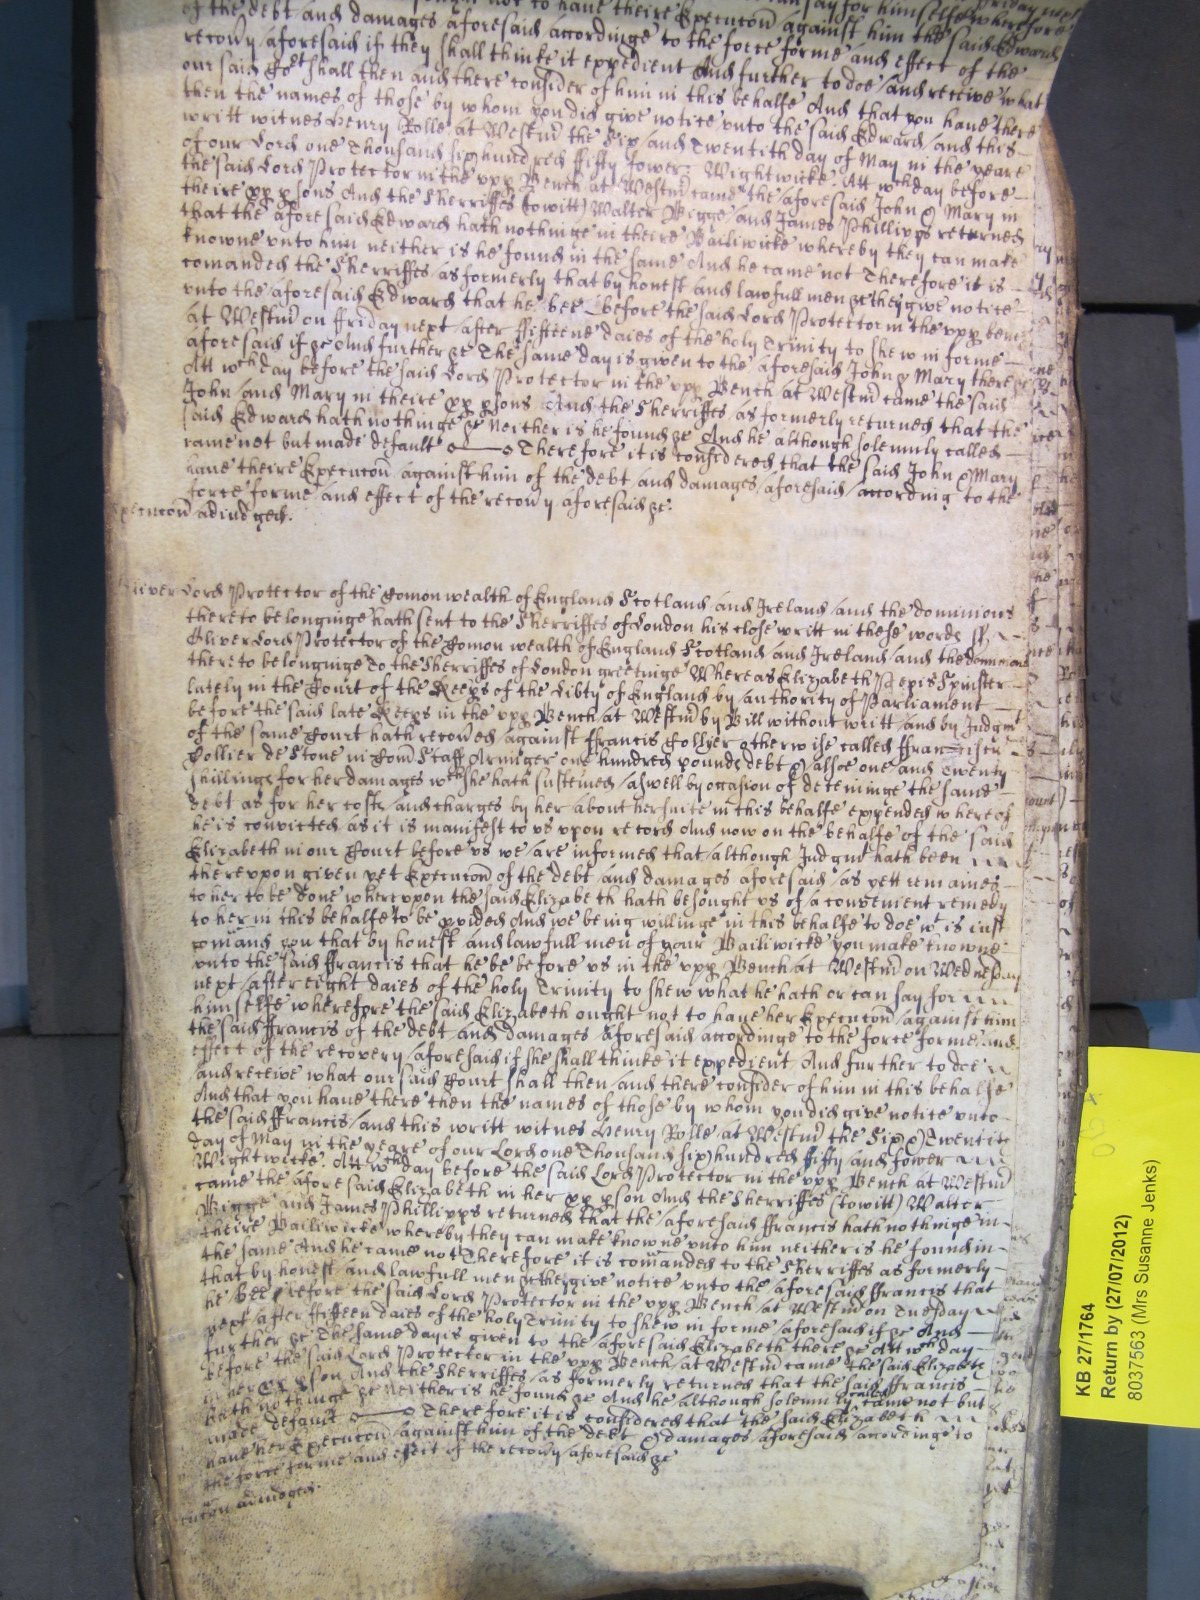 of the debt and damages aforesaid accordinge to the force forme and effect of the
recoũy aforesaid if they shall thinke it expedient And further to doe and receive what
our said Co:rt shall then and there consider of him in this behalfe And that you have there
then the names of those by whom you did give notice unto the said Edward and this
writt witnes Henry Rolle at Westm̃ the Six and Twentith day of May in the yeare
of our Lord one Thousand six hundred fifty fower: Wightwicke. Att wch day before
the said Lord Protector in the upp Bench at Westm̃ came the aforesaid John & Mary in
theire pp psons And the Sherriffes (towitt) Walter Bigge and James Phillipps returned
that the aforesaid Edward hath nothinge in theire Bailiwicke whereby they can make
knowne unto him neither is he found in the same And he came not Therefore it is
comanded the Sherriffes as formerly that by honest and lawfull men &c they give notice
unto the aforesaid Edward that he bee before the said Lord Protector in the upp Bench
at Westm̃ on Friday next after fifteene daies of the holy Trinity to shew in forme
aforesaid if &c And further &c The same day is given to the aforesaid John & Mary there &c
Att wch day before the said Lord Protector in the upp Bench at Westm̃ came the said
John and Mary in theire pp psons And the Sherriffes as formerly returned that the
said Edward hath nothinge &c Neither is he found &c And he although solemnly called
came not but made default Therefore it is considered that the said John & Mary
have theire Execucõn against him of the debt and damages aforesaid according to the
force forme and effect of the recoũy aforesaid &c.
Execucõn adiudged.
Oliver Lord Protector of the Comon wealth of England Scotland and Ireland and the dominions
thereto belonginge hath sent to the Sherriffes of London his close writt in these words ss
Oliver Lord Protector of the Comon wealth of England Scotland and Ireland and the dominions
thereto belonginge To the Sherriffes of London greetinge Whereas Elizabeth Pepis Spinster
lately in the Court of the Keeps of the Libty of England by authority of Parliament
before the said late Keeps in the upp Bench at Westm̃ by Bill without writt and by Judgmt
of the same Court hath recoũed against Francis Collyer otherwise called Franciscu
Collier de Stone in Com̃ Staff Armiger one hundred pounds debt & alsoe one and Twenty
shillings for her damages wch she hath susteined aswell by occasion of deteininge the same
debt as for her costs and charges by her about her suite in this behalfe expended whereof
he is convicted as it is manifest to us upon record And now on the behalfe of the said
Elizabeth in our Court before us we are informed that although Judgmt hath been
thereupon given yet Execucõn of the debt and damages aforesaid as yett remaines
to her to be done whereupon the said Elizabeth hath besought us of a convenient remedy
to her in this behalfe to be pvided And we being willinge in this behalfe to doe wt is iust
comand you that by honest and lawfull men of your Bailiwicke you make knowne
unto the said Francis that he be before us in the upp Bench at Westm̃ on Wednesday
next after eight daies of the holy Trinity to shew what he hath or can say for
himselfe wherefore the said Elizabeth ought not to have her Execucõn against him
the said Francis of the debt and damages aforesaid accordinge to the force forme and
effect of the recovery aforesaid if she shall thinke it expedient And further to doe
and receive what our said Court shall then and there consider of him in this behalfe
And that you have there then the names of those by whom you did give notice unto
the said Francis and this writt witnes Henry Rolle at Westm̃ the Six & Twentith
day of May in the yeare of our Lord one Thousand six hundred fifty and fower
Wightwicke. Att wch day before the said Lord Protector in the upp Bench at Westm̃
came the aforesaid Elizabeth in her pp pson And the Sherriffes (towitt) Walter
Bigge and James Phillipps returned that the aforesaid Francis hath nothinge in
theire Bailiwicke whereby they can make knowne unto him neither is he found in
the same And he came not Therefore it is comanded to the Sherriffes as formerly
that by honest and lawfull men &c they give notice unto the aforesaid Francis that
he bee before the said Lord Protector in the upp Bench at Westm̃ on Tuesday
next after fifteen daies of the holy Trinity to shew in forme aforesaid if &c And
further &c The same day is given to the aforesaid Elizabeth there &c Att wch day
before the said Lord Protector in the upp Bench at Westm̃ came the said Elizabeth
in her pp pson And the Sherriffes as formerly returned that the said Francis
hath nothinge &c Neither is he found &c And he although solemnly called came not but
made default Therefore it is considered that the said Elizabeth
have her Execucõn against him of the debt & damages aforesaid accordinge to
the force forme and effect of the recoũy aforesaid &c
adiudged.
KB 27/1764
Return by (27/07/2012)
8037563 (Mrs Susanne Jenks)